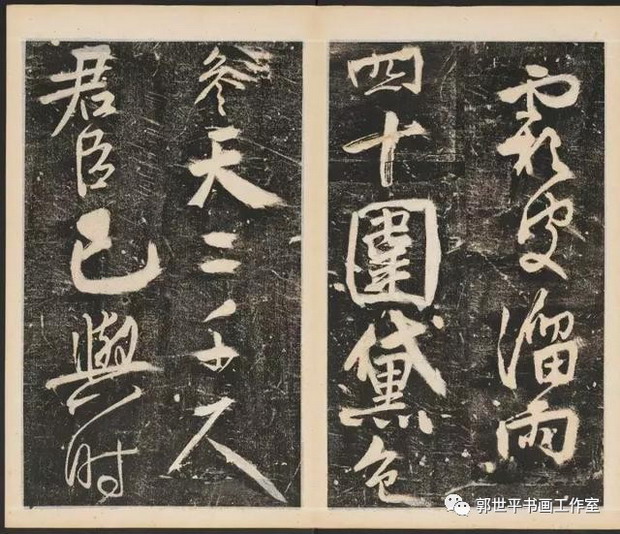 霜皮溜雨
四十圍黛色
參天二千尺
君臣已與時
郭世平书画工作室